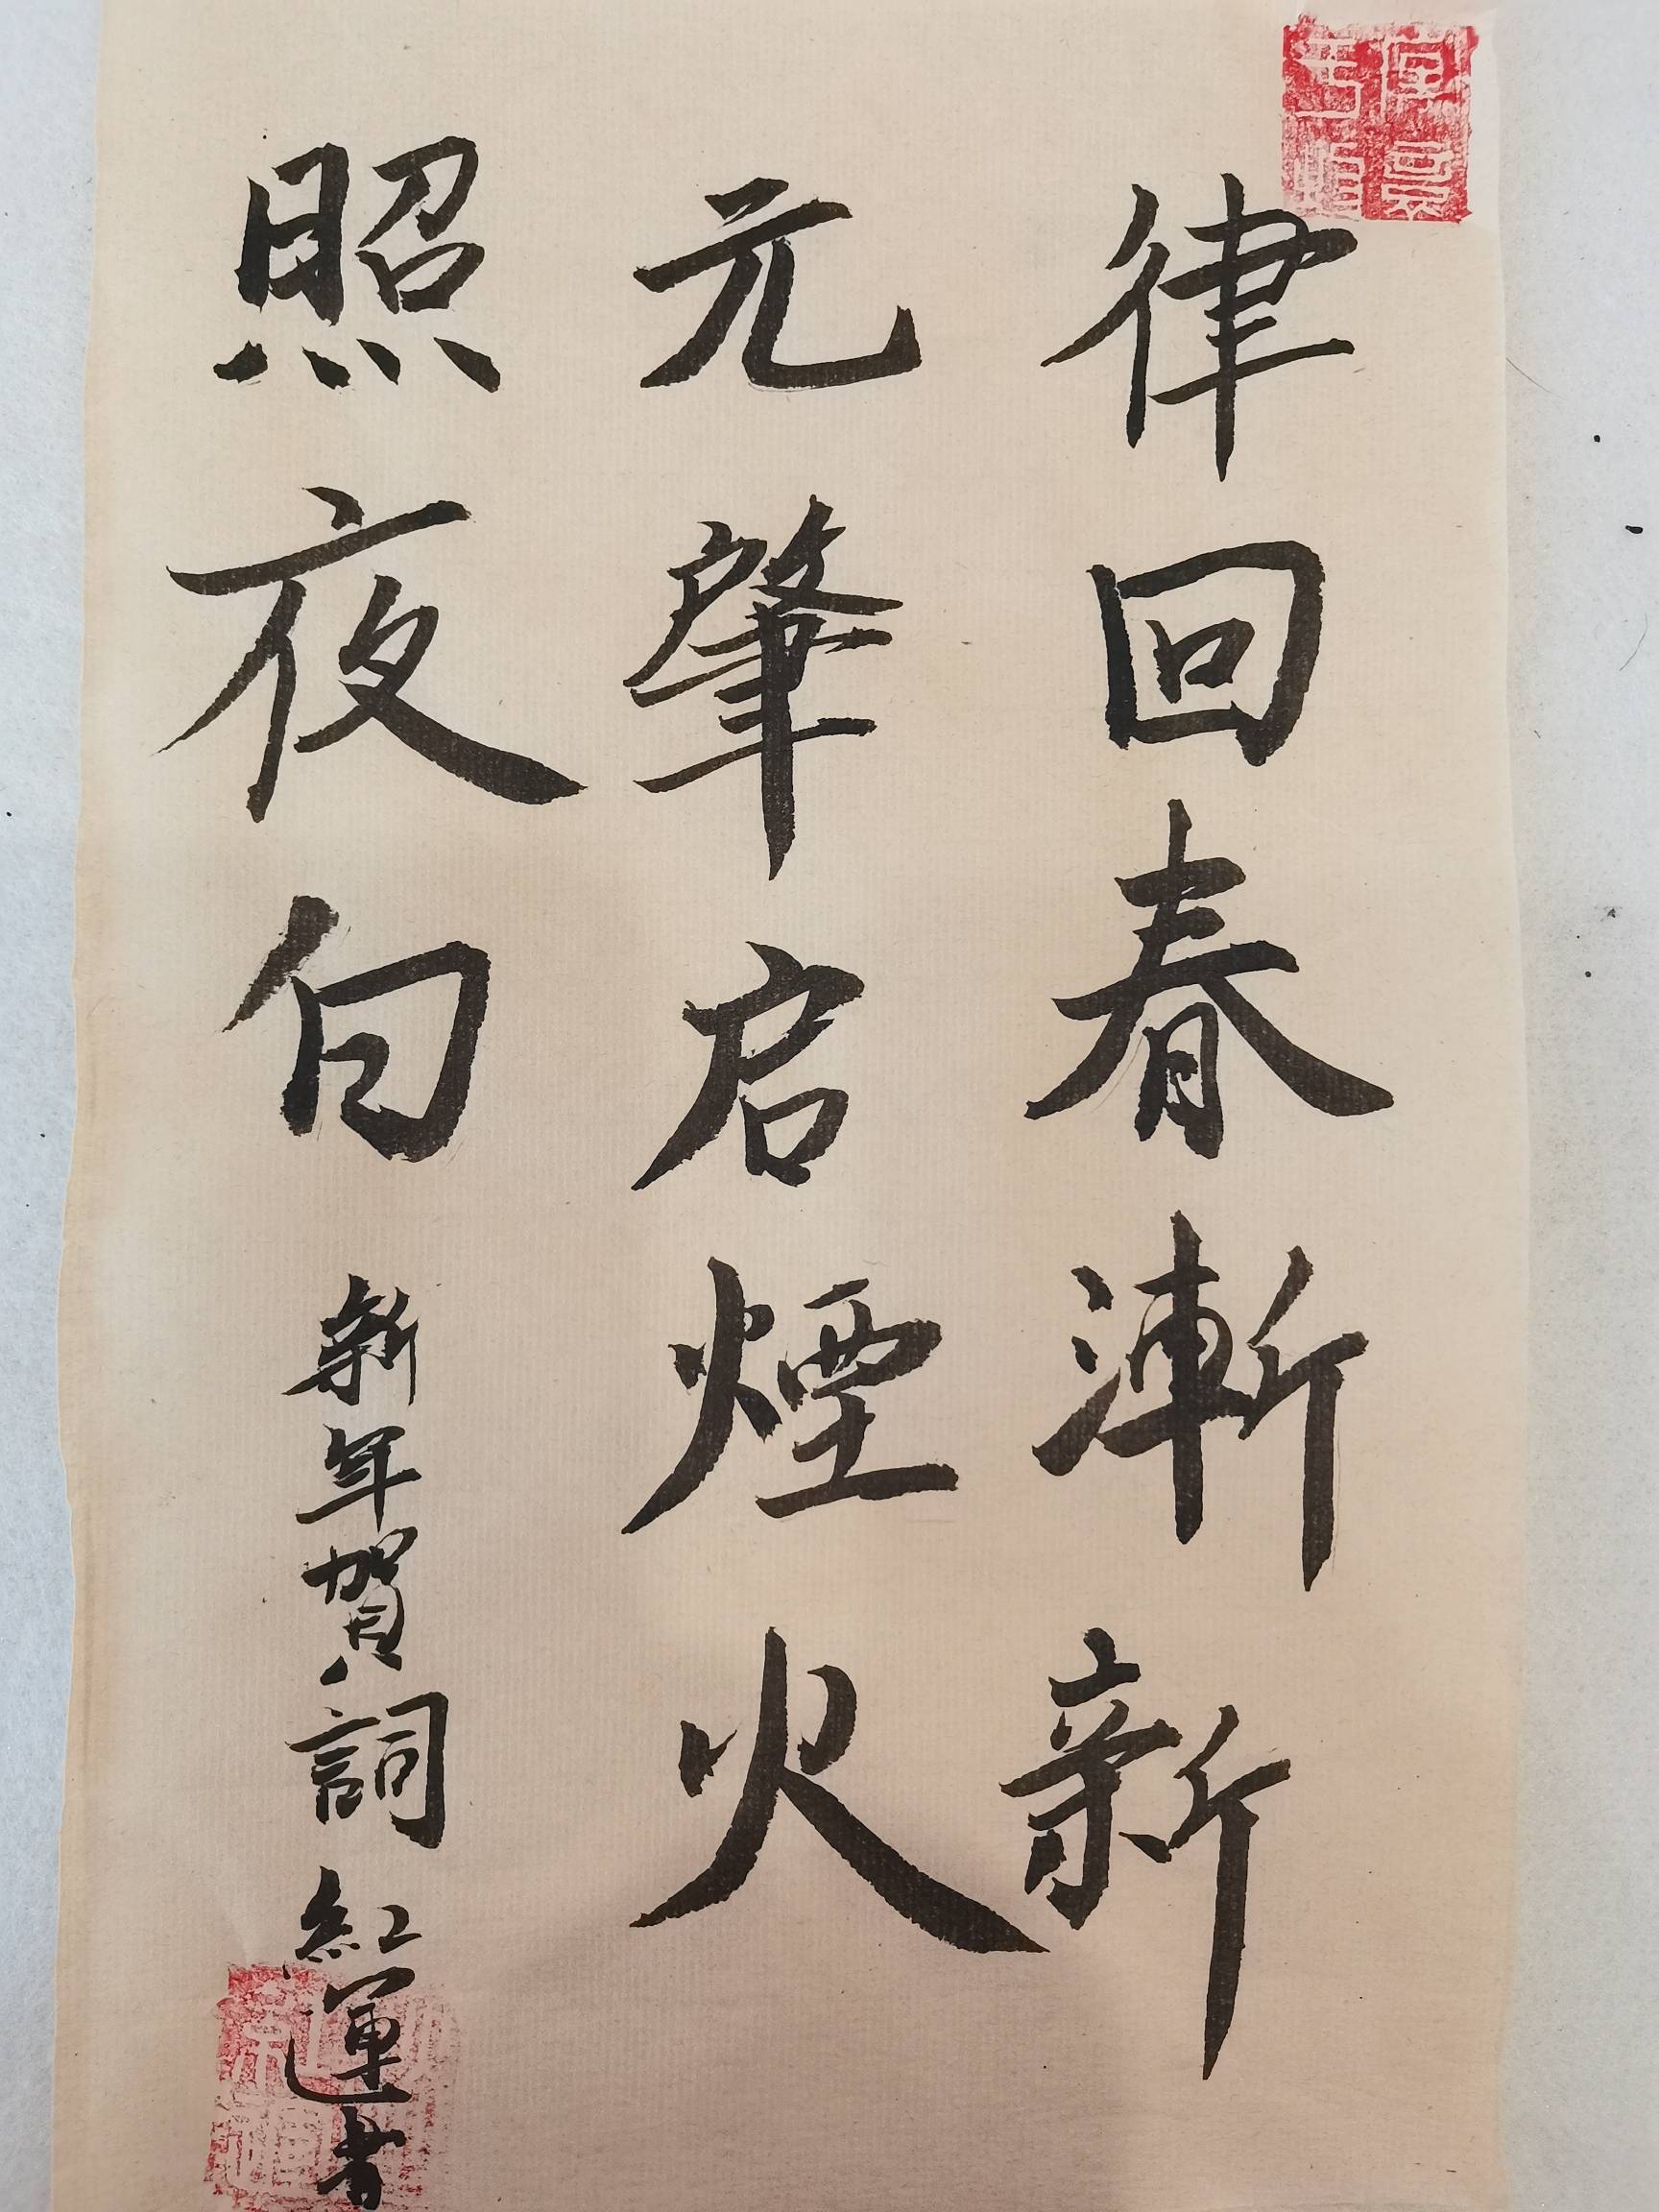 律回春漸新
元肇启煙火
照夜白 新年賀詞 紅運書